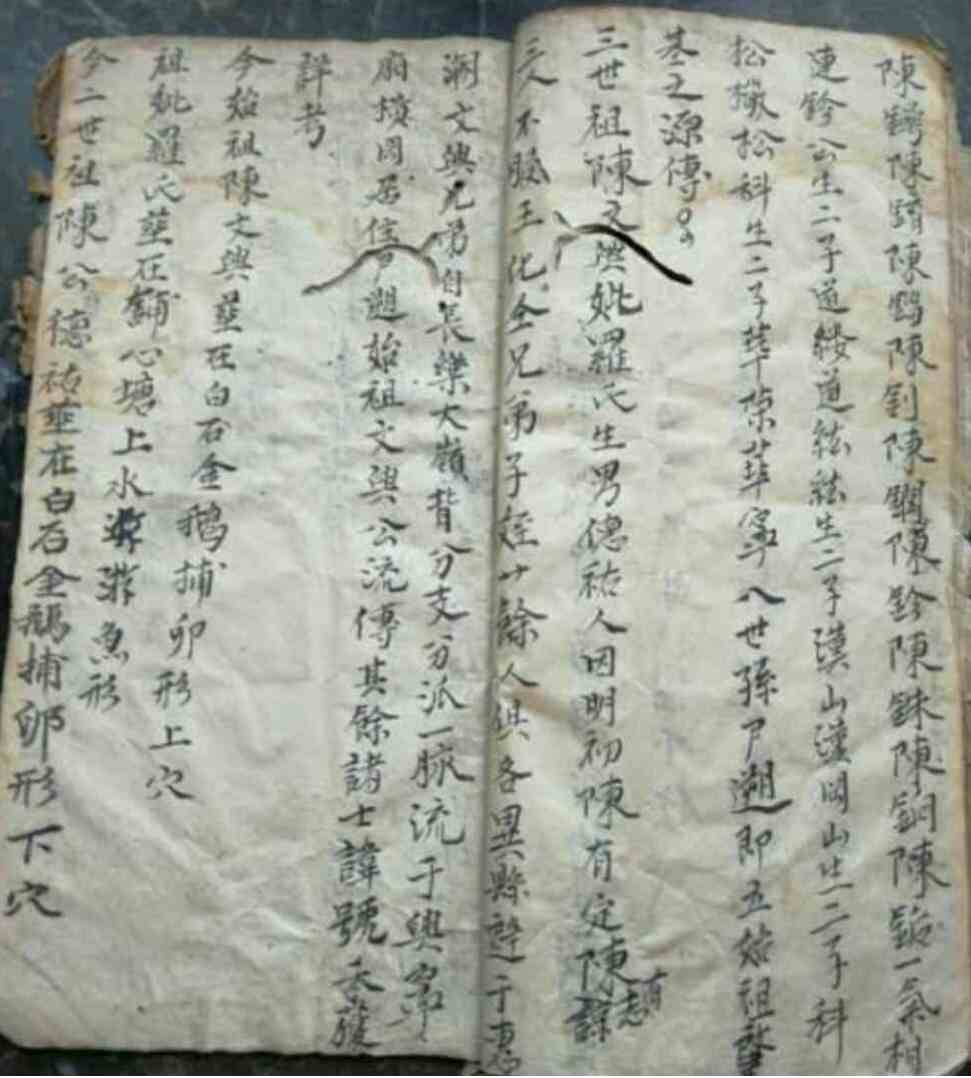 陳錡陳鑄陳鴞陳釗陳鋼陳鈐陳銖陳銅陳鉛一氣相
連鈐公生二子道綾道紘紘生二子漢山漢岡山生二子科
松椒松科生二子華榮華寧八世孫尸遡即五始祖發
基之源傳
三世祖陳文興妣羅氏生男德祐人因明初陳有定陳有諒志
三人不服王化全兄弟子姪十餘人俱各異縣遊于惠
潮文興兄弟自長樂大嶺背分支分派一脉流于興寧
廟墩岡居住遡始祖文興公流傳其餘諸士諱號未獲
詳考
今始祖陳文興塟在白石金鵝捕卵形上穴
祖妣羅氏塟在心塘上水游魚形
今二世祖陳公德祐塟在白石金鵝捕卵形下穴